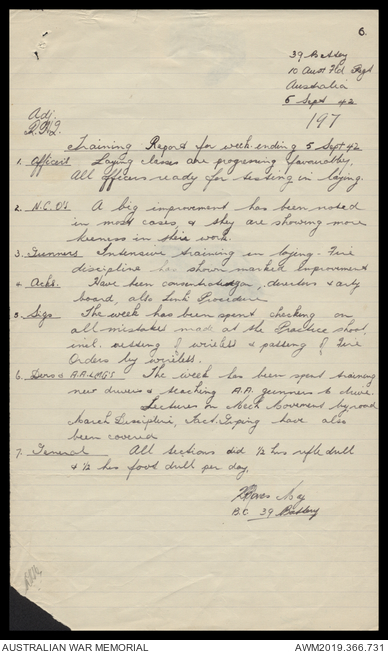 6.
39 Battery
10 Aust Fld Regt
Australia
5 Sept 42
197
Adj
R.H.Q.
Training Report for week ending 5 Sept 42
1. Officers Laying classes are progressing favourably.
All Officers ready for testing in laying.
2. N.C.O's A big improvement has been noted
in most cases, & they are showing more
keeness in their work.
3. Gunners Intensive training in laying. Fire
discipline has shown marked improvement
4. Acks. Have been directors & arty
board, also Link Procedure
5. Sigs The week has been spent checking on
all mistakes made at the Practice shoot,
incl. netting of wireless & passing of Fire
Orders by wireless.
6. Dvrs & A.A.LMG'S The week has been spent training
new drivers & teaching A.A. gunners to drive.
Lectures on Mech Movement by road,
March Discipline, have also
been covered
7. General All sections did ½ hrs rifle drill
& ½ hrs foot drill per day.
Maj
B.C 39 Battery
AUSTRALIAN WAR MEMORIAL
AWM2019.366.731